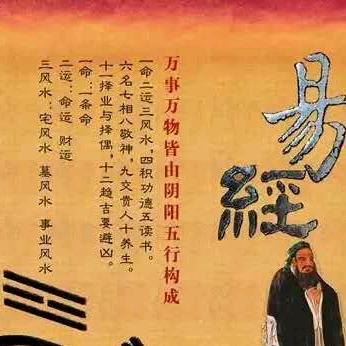 易經
万事万物皆由阴阳五行构成
一命二运三风水，四积功德五读书。
六名七相八敬神，九交贵人十养生。
十一择业与择偶，十二趋吉要避凶。
一命：一条命
二运：命运 财运
三风水：宅风水 墓风水 事业风水